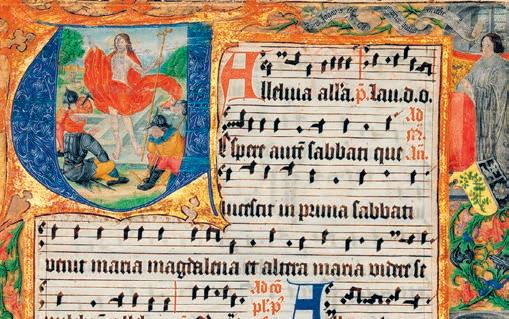 Alleluia all'a. p̄. Lau.d.o.
ad
Vespere autē sabbati que añ.
lucescit in prima sabbati
venit maria magdalena et altera maria videre se
ad cō
A